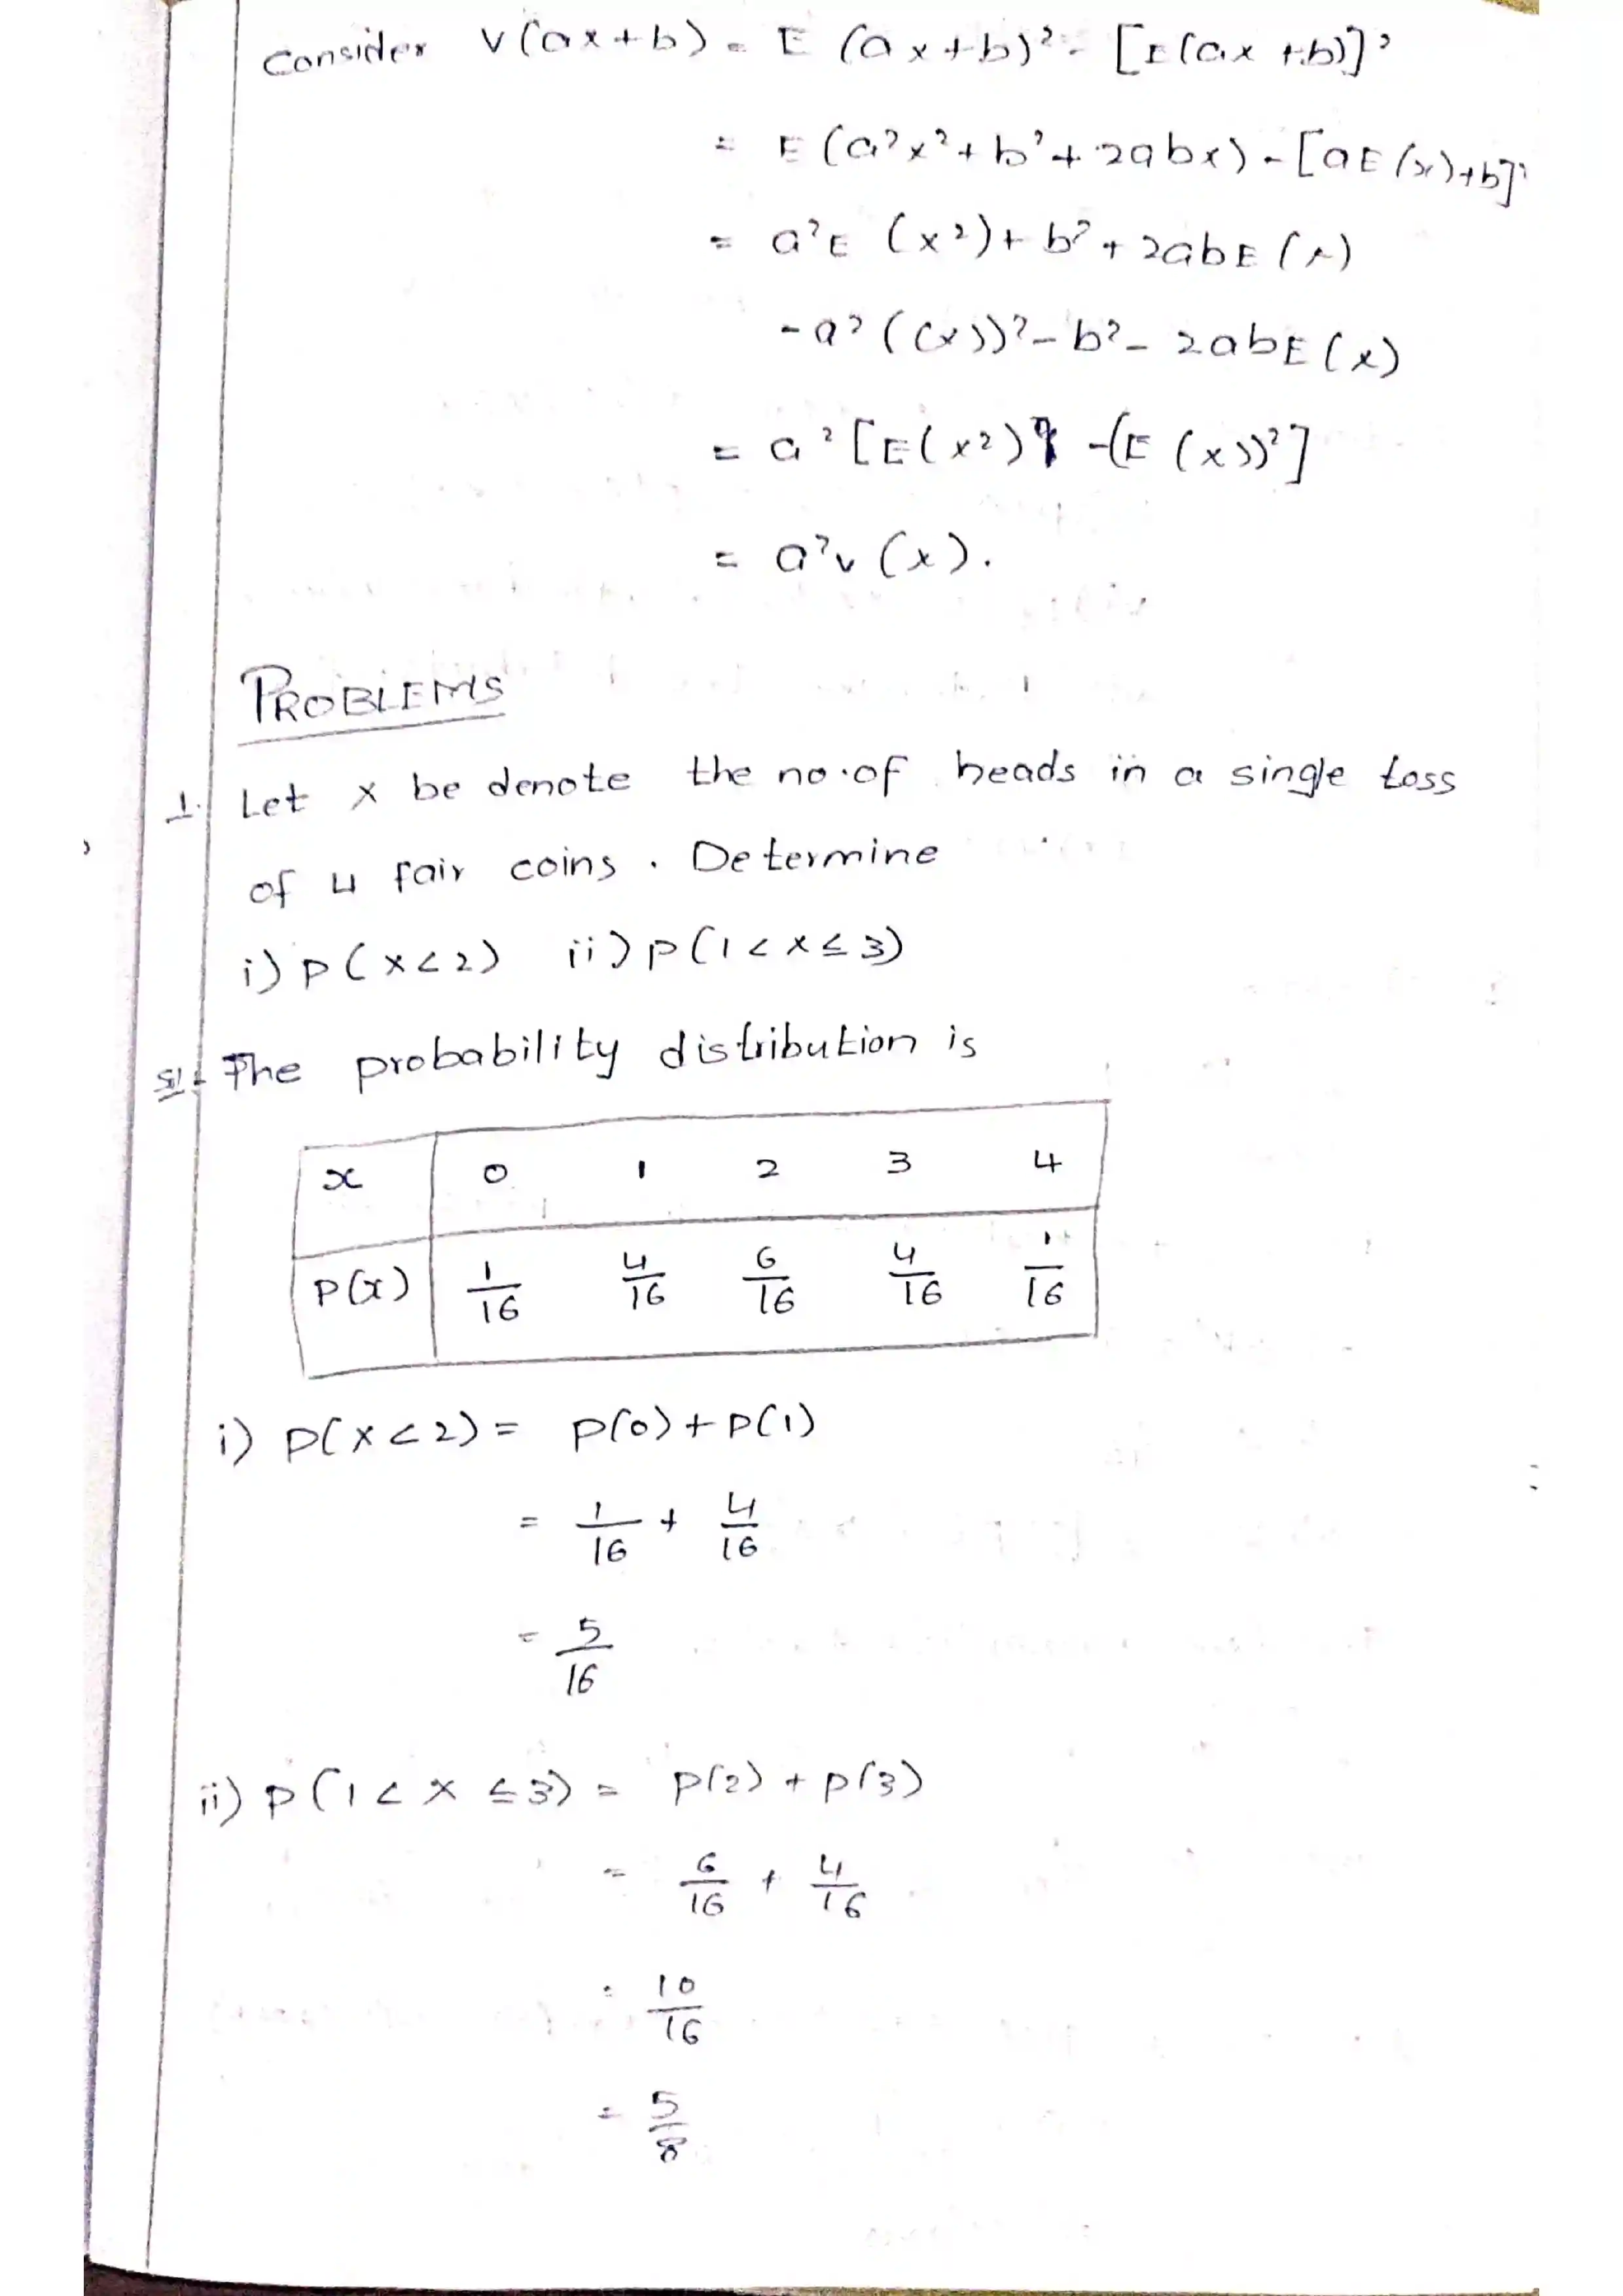 Consider V(ax+b) = E (ax+b)² - [E(ax+b)]²
= E (a²x²+b²+2abx) - [aE(x)+b]²
= a²E (x²)+ b²+2abE(x)
-a²((x))²-b²-2abE(x)
= a²[E(x²) -(E (x))²]
= a²v(x).
PROBLEMS
1. Let x be denote the no.of heads in a single toss
of 4 fair coins. Determine
i) P(x<2) ii) P(1<x≤3)
Sol: The probability distribution is
x 0 1 2 3 4
P(x) 1/16 4/16 6/16 4/16 1/16
i) P(x<2) = P(0)+P(1)
= 1/16 + 4/16
= 5/16
ii) P(1<x≤3) = P(2)+P(3)
= 6/16 + 4/16
= 10/16
= 5/8